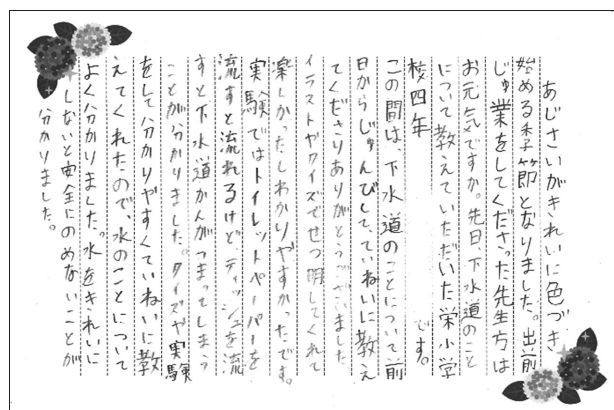 あじさいがきれいに色づき
始める季節となりました。出前
じゅ業をしてくださった先生方は
お元気ですか。先日、下水道のこと
について教えていただいた栄小学
校四年 です。
この間は、下水道のことについて前
日からじゅんびして、ていねいに教え
てくださりありがとうございました。
イラストやクイズでせつ明してくれて
楽しかったしわかりやすかったです。
実験ではトイレットペーパーを
流すと流れるけど、ティッシュを流
すと下水道かんがつまってしまう
ことが分かりました。クイズや実験
をして分かりやすくていねいに教
えてくれたので、水のことについて
よく分かりました。水をきれいに
しないと安全にのめないことが
分かりました。